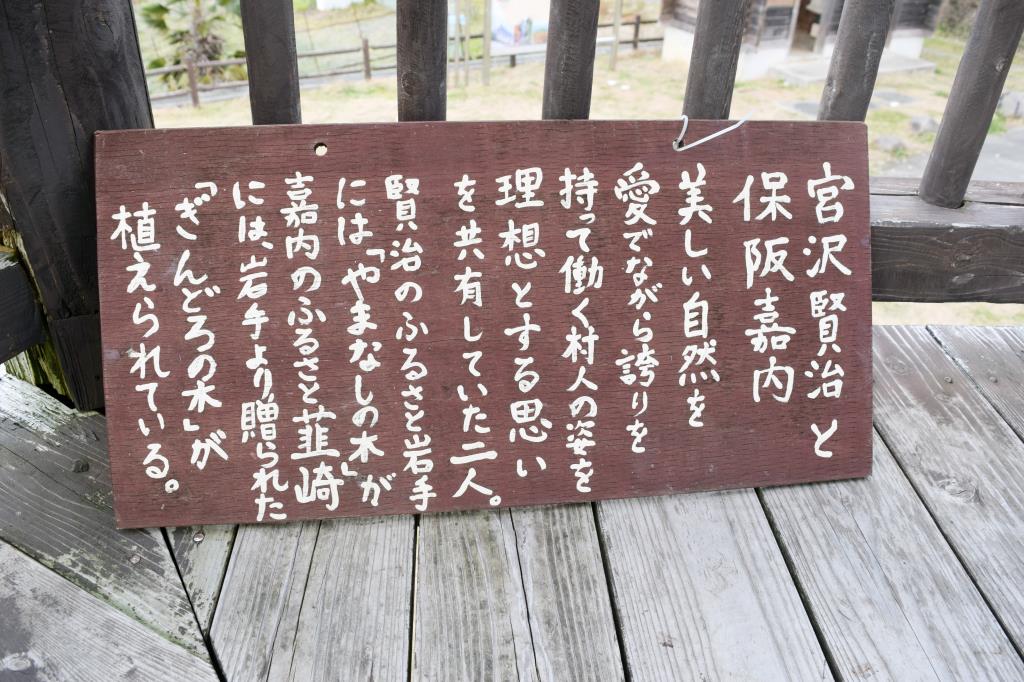 宮沢賢治と
保阪嘉内
美しい自然を
愛でながら誇りを
持って働く村人の姿を
理想とする思い
を共有していた二人。
賢治のふるさと岩手
には「やまなしの木」が
嘉内のふるさと韮崎
には、岩手より贈られた
「ぎんどろの木」が
植えられている。